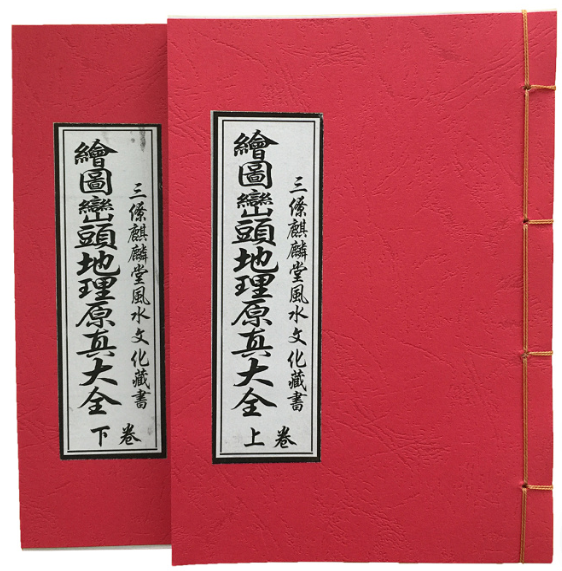 三僚麒麟堂風水文化藏書
繪圖巒頭地理原真大全
上卷
三僚麒麟堂風水文化藏書
繪圖巒頭地理原真大全
下卷